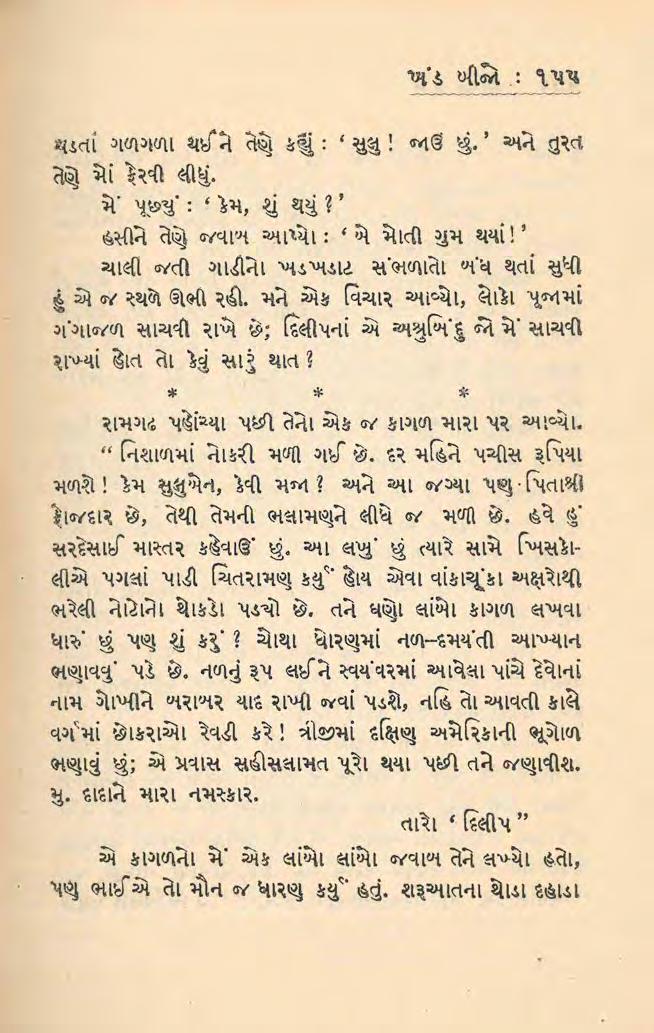 ખંડ બીજો : ૧૫૫
ચડતાં ગળગળા થઈને તેણે કહ્યું : ‘ સુલુ ! જાઉં છું. ’ અને તુરત
તેણે મોં ફેરવી લીધું.
મેં પૂછ્યું : ‘ કેમ, શું થયું ? ’
હસીને તેણે જવાબ આપ્યો : ‘ બે મોતી ગુમ થયાં ! ’
ચાલી જતી ગાડીનો ખડખડાટ સંભળાતો બંધ થતાં સુધી
હું એ જ સ્થળે ઊભી રહી. મને એક વિચાર આવ્યો, લોકો પૂજામાં
ગંગાજળ સાચવી રાખે છે; દિલીપનાં એ અશ્રુબિંદુ જો મેં સાચવી
રાખ્યાં હોત તો કેવું સારું થાત ?
* * *
રામગઢ પહોંચ્યા પછી તેનો એક જ કાગળ મારા પર આવ્યો.
“ નિશાળમાં નોકરી મળી ગઈ છે. દર મહિને પચીસ રૂપિયા
મળશે ! કેમ સુલુબેન, કેવી મજા ? અને આ જગ્યા પણ પિતાશ્રી
ફોજદાર છે, તેથી તેમની ભલામણને લીધે જ મળી છે. હવે હું
સરદેસાઈ માસ્તર કહેવાઉં છું. આ લખું છું ત્યારે સામે ખિસકો-
લીએ પગલાં પાડી ચિતરામણ કર્યું હોય એવા વાંકાચૂંકા અક્ષરોથી
ભરેલી નોટોનો થોકડો પડ્યો છે. તને ઘણો લાંબો કાગળ લખવા
ધારું છું પણ શું કરું ? ચોથા ધોરણમાં નળ–દમયંતી આખ્યાન
ભણાવવું પડે છે. નળનું રૂપ લઈને સ્વયંવરમાં આવેલા પાંચે દેવોનાં
નામ ગોખીને બરાબર યાદ રાખી જવાં પડશે, નહિ તો આવતી કાલે
વર્ગમાં છોકરાઓ રેવડી કરે ! ત્રીજીમાં દક્ષિણ અમેરિકાની ભૂગોળ
ભણાવું છું; એ પ્રવાસ સહીસલામત પૂરો થયા પછી તને જણાવીશ.
મુ. દાદાને મારા નમસ્કાર.
તારો ‘ દિલીપ ”
એ કાગળનો મેં એક લાંબો લાંબો જવાબ તેને લખ્યો હતો,
પણ ભાઈએ તો મૌન જ ધારણ કર્યું હતું. શરૂઆતના થોડા દહાડા